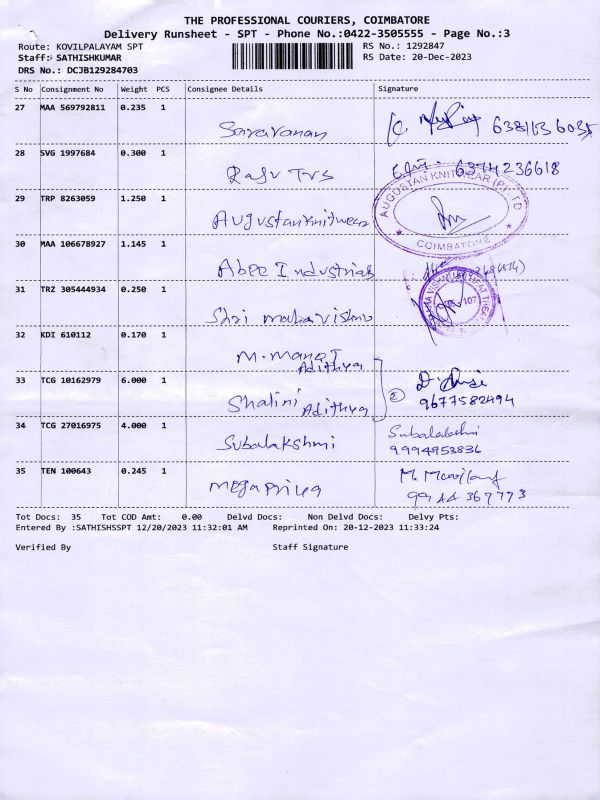 THE PROFESSIONAL COURIERS, COIMBATORE
Delivery Runsheet - SPT - Phone No.:0422-3505555 - Page No.:3
Route: KOVILPALAYAM SPT RS No.: 1292847
Staff: SATHISHKUMAR RS Date: 20-Dec-2023
DRS No.: DCJB129284703
S No Consignment No Weight PCS Consignee Details Signature
27 MAA 569792811 0.235 1
Saravanan
28 SVG 1997684 0.300 1
Raju TVS 6374236618
29 TRP 8263059 1.250 1
Augustanknitwear
AUGUSTAN KNITWEAR (P) LTD
COIMBATORE
30 MAA 106678927 1.145 1
Abee Industrias
31 TRZ 305444934 0.250 1
Shri mahavishnu
107
32 KDI 610112 0.170 1
M. Manoj
Adithya
33 TCG 10162979 6.000 1
Shalini Adithya
2
9677582494
34 TCG 27016975 4.000 1
Subalakshmi Subalakshmi
9994953836
35 TEN 100643 0.245 1
Megapriya
9944 367773
Tot Docs: 35 Tot COD Amt: 0.00 Delvd Docs: Non Delvd Docs: Delvy Pts:
Entered By :SATHISHSSPT 12/20/2023 11:32:01 AM Reprinted On: 20-12-2023 11:33:24
Verified By Staff Signature